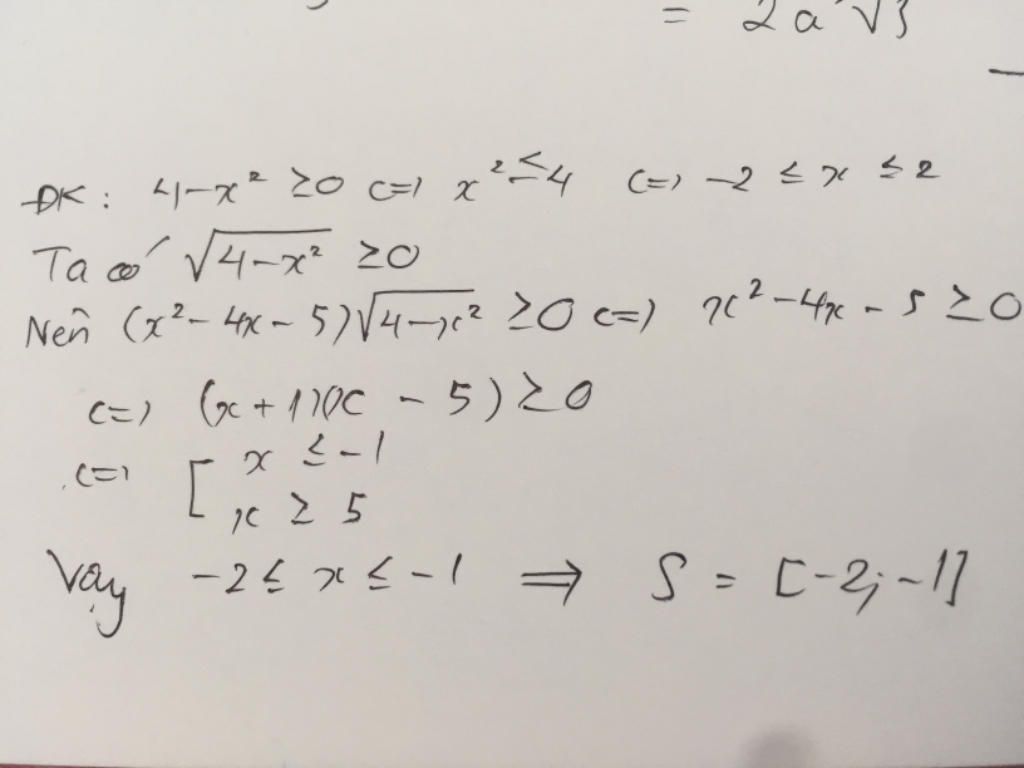 = 2a √3
ĐK: 4-x² ≥0 <=> x² ≤ 4 <=> -2 ≤ x ≤ 2
Ta có √(4-x²) ≥0
Nên (x²- 4x - 5)√(4-x²) ≥0 <=> x²-4x - 5 ≥0
<=> (x+1)(x - 5) ≥ 0
<=> [ x ≤ -1
x ≥ 5
Vậy -2 ≤ x ≤ -1 ⟹ S = [-2;-1]